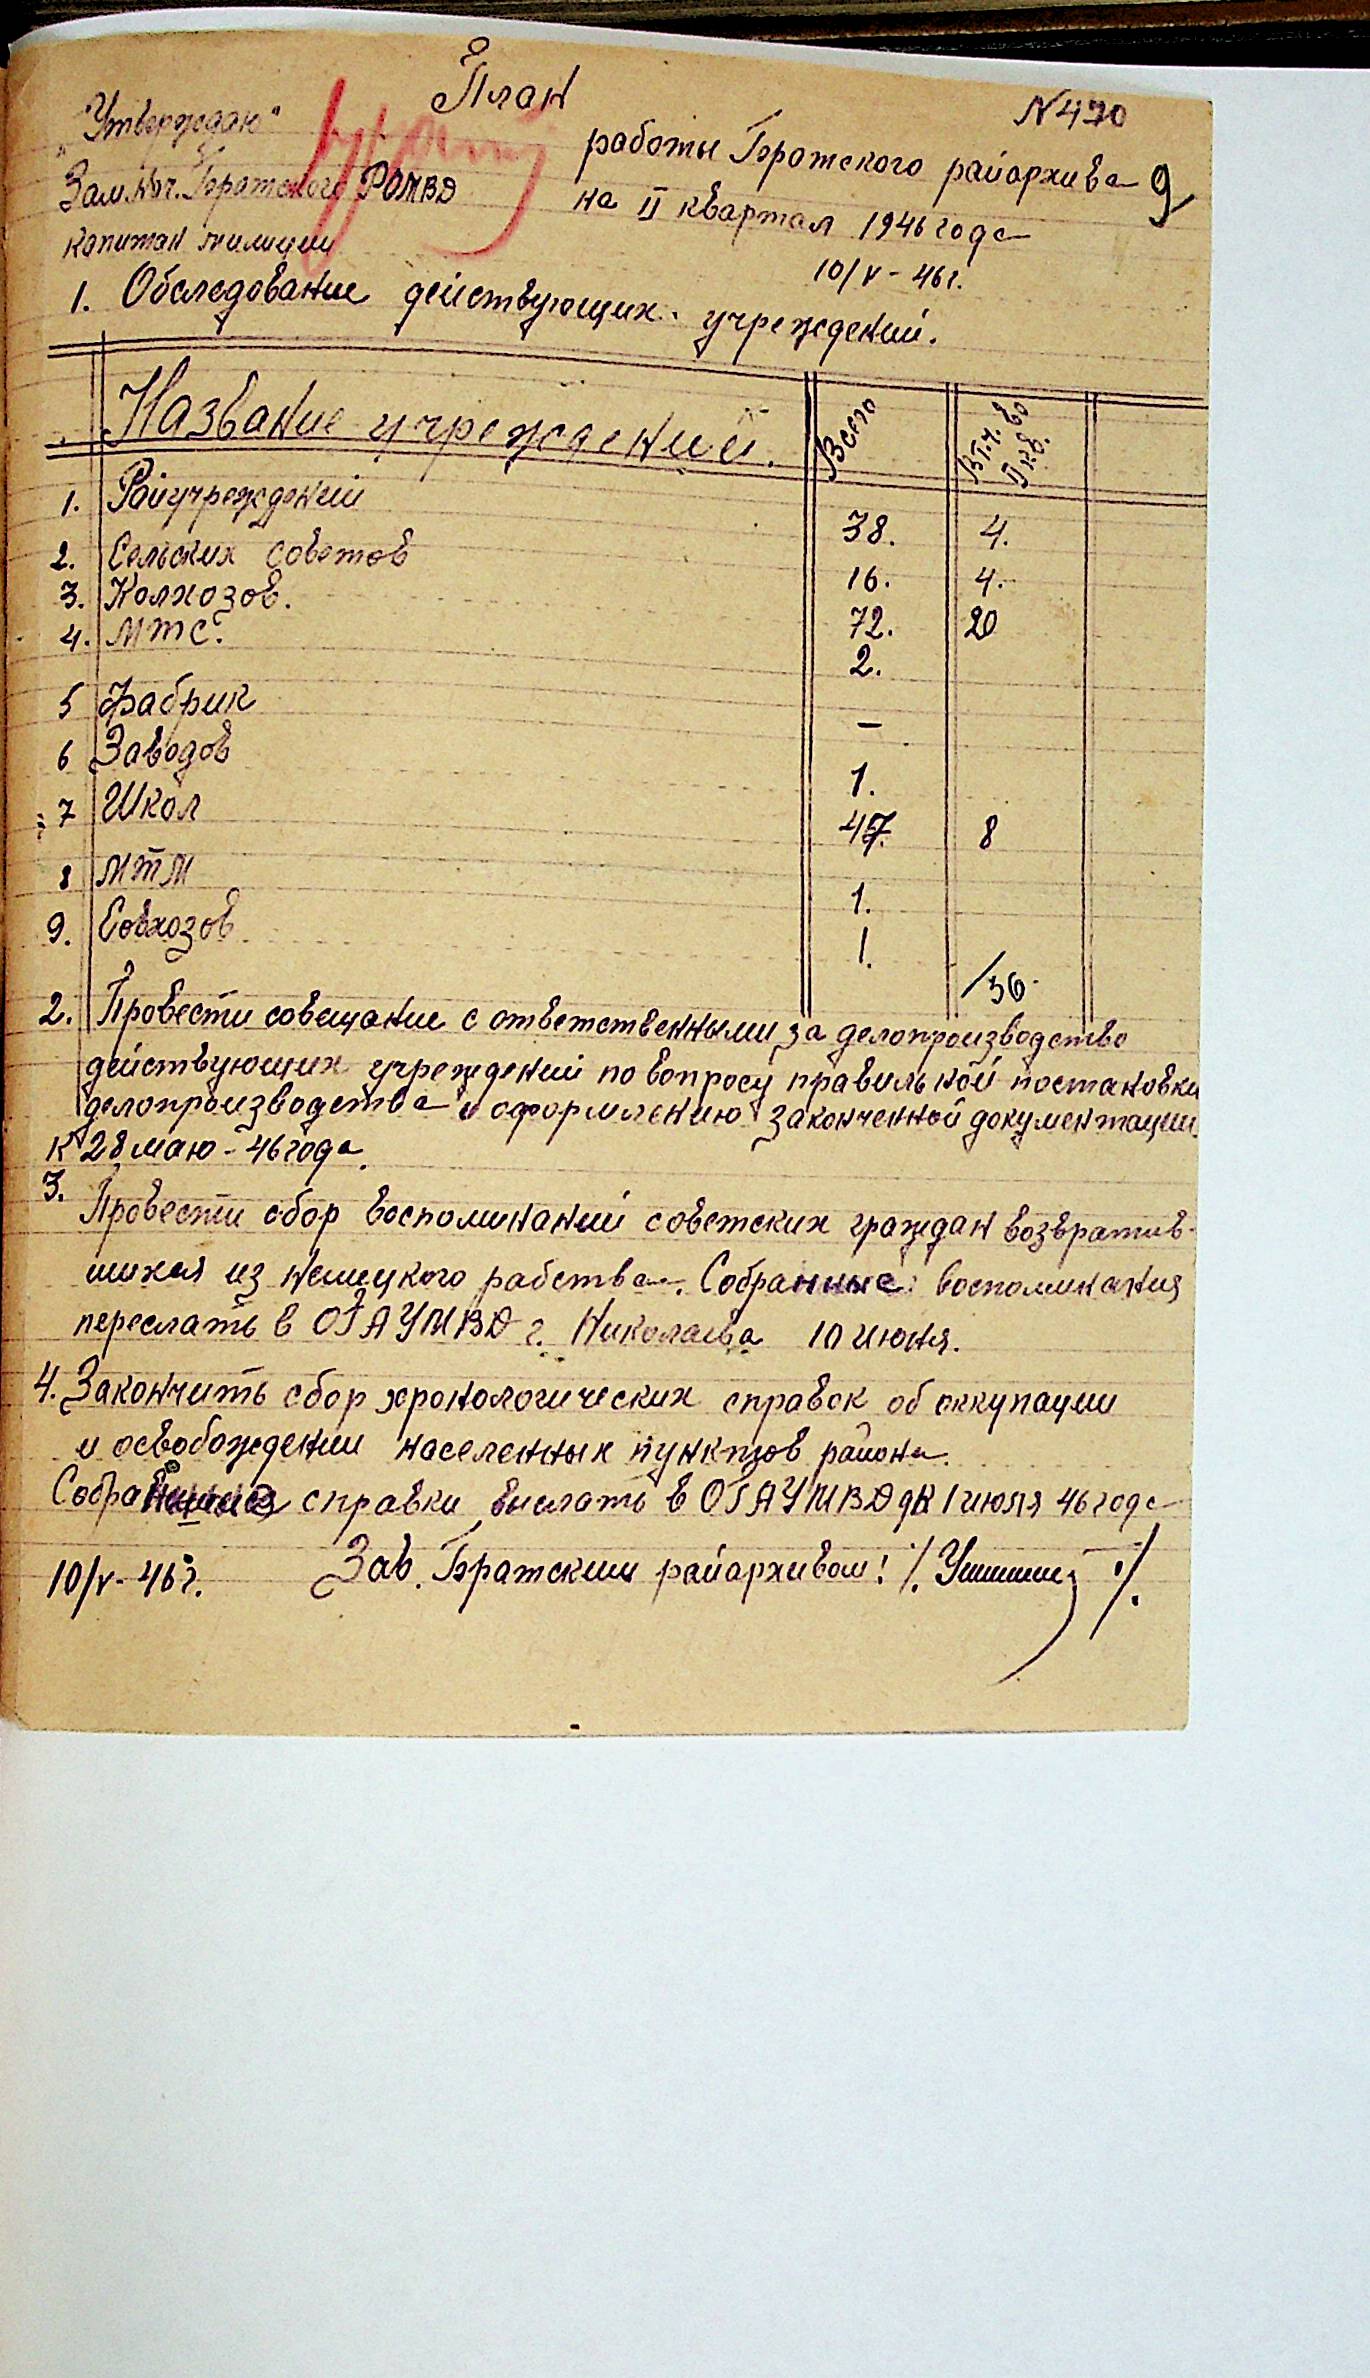 План
N490
"Утверждаю"
Зам.Нач. Братского РОМВД
капитан милиции
работы Братского райархива 9
на II квартал 1946 года
10/V-46г.
1. Обследование действующих учреждений.
Название учреждений. Всего В т.ч. во II кв.
1. Райучреждений 38. 4.
2. Сельских советов 16. 4.
3. Колхозов. 72. 20
4. МТС. 2.
5 Фабрик –
6 Заводов 1.
7 Школ 47. 8
8 МТМ 1.
9. Совхозов 1.
/36.
2. Провести совещание с ответственными за делопроизводство
действующих учреждений по вопросу правильной постановки
делопроизводства и оформлению законченной документации
к 28 маю-46 года.
3. Провести сбор воспоминаний советских граждан возвратив-
шихся из немецкого рабства. Собранные воспоминания
переслать в ОГАУМВД г. Николаева 10 июня.
4. Закончить сбор хронологических справок об оккупации
и освобождении населенных пунктов района.
Собранные справки выслать в ОГАУМВД к 1 июля 46 года
10/V-46г. Зав. Братским райархивом: